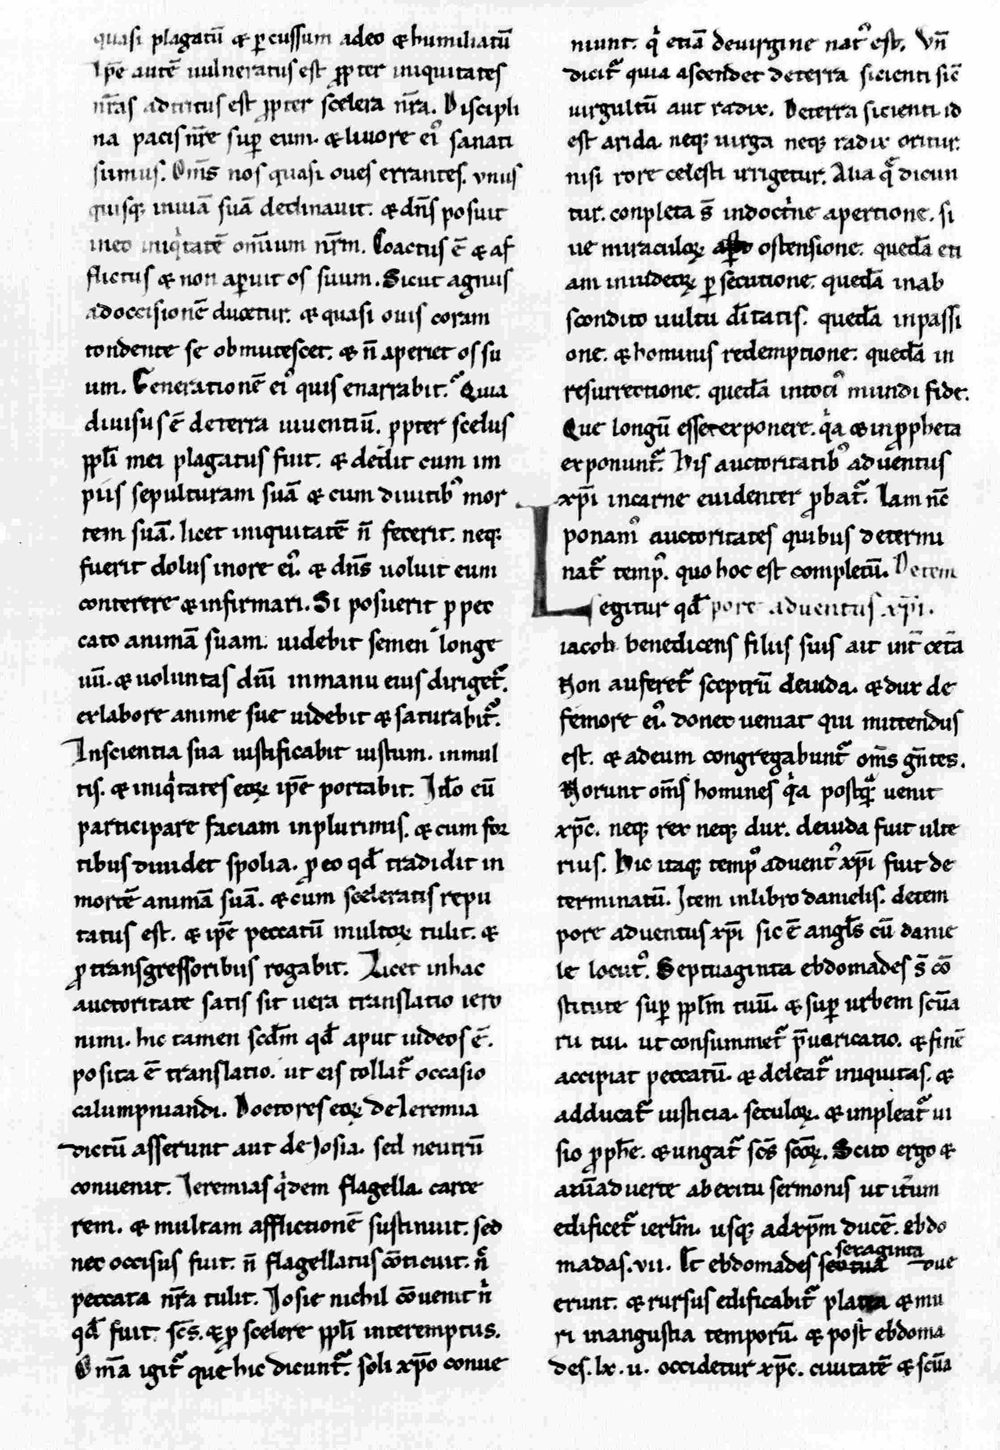 quasi plagatū & p̱cussum adeo & humiliatū
Ip̄e autē uulneratus est ꝓpter iniquitates
nr̄as adtritus est ꝓpter scelera nr̄a. Discipli
na pacis nr̄e sup̱ eum. & liuore eiꝰ sanati
sumus. Om̄s nos quasi oues errantes. vnus
quisq; inuiā suā declinauit. & dn̄s posuit
ineo iniqͥtatē omnium nr̄m. Coactus ē & af
flictus & non ap̱uit os suum. Sicut agnus
adoccisionē ducetur. & quasi ouis coram
tondente se obmutescet. & n̄ aperiet os su
um. Generationē eiꝰ quis enarrabit. Quia
diuisus ē deterra uiuentiū. ꝓpter scelus
ppl̄i mei plagatus fuit. & dedit cum im
piis sepulturam suā & cum diuitibꝰ mor
tem suā. licet iniquitatē n̄ fecerit. neq;
fuerit dolus inore eiꝰ. & dn̄s uoluit eum
conterere & infirmari. Si posuerit ꝓ pec
cato animā suam. uidebit semen longe
uū. & uoluntas dn̄i inmanu eius diriget᷑.
exlabore anime sue uidebit & saturabit᷑.
Inscientia sua iustificabit iustum. inmul
tis. & iniqͥtates eoꝝ ip̄e portabit. Ido̅ eū
participare faciam inplurimis. & cum for
tibus diuidet spolia. ꝓ eo qd̄ tradidit in
mortē animā suā. & cum sceleratis repu
tatus est. & ip̄e peccatū multoꝝ tulit. &
ꝓ transgressoribus rogabit. Licet inhac
auctoritate satis sit uera translatio iero
nimi. hic tamen scdm̄ qd̄ aput iudeos ē.
posita ē translatio. ut eis tollat᷑ occasio
calumpniandi. Doctores eoꝝ de Ieremia
dictū asserunt aut de Iosia. sed neutrū
conuenit. Ieremias qͥdem flagella. carce
rem. & multam afflictionē sustinuit. sed
nec occisus fuit. n̄ flagellatus cōticuit. n̄
peccata nr̄a tulit. Iosie nichil cōuenit nͥ
qd̄ fuit sc̄s. & ꝓ scelere ppl̄i interemptus.
Om̄a igit᷑ que hic dicunt᷑. soli xp̄o conue
niunt. qͥ etiā deuirgine natꝰ est. Vn̄
dicit᷑ quia ascendet deterra sicienti sic̄
uirgultū aut radix. Deterra sicienti id
est arida. neq; uirga neq; radix oritur.
nisi rore celesti irrigetur. Alia qͣ̄ dicun
tur. conpleta s̄ indoctͥne apertione. si
ue miraculoꝝ ostensione. quedā eti
am iniudeoꝝ p̱secutione. quedā inab
scondito uultu di̅tatis. quedā inpassi
one. & hominis redemptione. quedā in
resurrectione. quedā intociꝰ mundi fide.
Que longū esset exponere. qͥa & inꝓpheta
exponunt᷑. His auctoritatibꝰ aduentus
xp̄i incarne euidenter ꝓbat᷑. Iam nc̄
ponamꝰ auctoritates quibus determi
nat᷑ tempꝰ. quo hoc est completū. De tem
Legitur qd̄ pore aduentus xp̄i.
iacob benedicens filiis suis ait int̄ cet̄a
Non auferet᷑ sceptrū deiuda. & dux de
femore eiꝰ. donec ueniat qui mittendus
est. & adeum congregabunt᷑ om̄s gn̄tes.
Norunt om̄s homines qͥa postqͣ̄ uenit
xp̄c. neq; rex neq; dux. deiuda fuit ulte
rius. Hic itaq; tempꝰ aduentꝰ xp̄i fuit de
terminatū. Item inlibro danielis. detem
pore aduentus xp̄i sic ē angl̄s cū danie
le locutꝰ. Septuaginta ebdomades s̄ cō
stitute sup̱ ppl̄m tuū. & sup̱ urbem scūa
ru tui. ut consummet᷑ p̄uaricatio. & finē
accipiat peccatū. & deleat᷑ iniquitas. &
adducat᷑ iusticia. seculoꝝ. & impleat᷑ ui
sio ꝓphe̅. & ungat᷑ sc̄s sc̄oꝝ. Scito ergo &
aiūaduerte abexitu sermonis ut it̄um
edificet᷑ ierl̄m. usq; adxp̄m ducē. ebdo
madas .vii. Et ebdomades sexaginta due
erunt. & rursus edificabit᷑ platea & mu
ri inangustia temporū. & post ebdoma
des .lx.u. occidetur xp̄c. ciuitatē & scūa